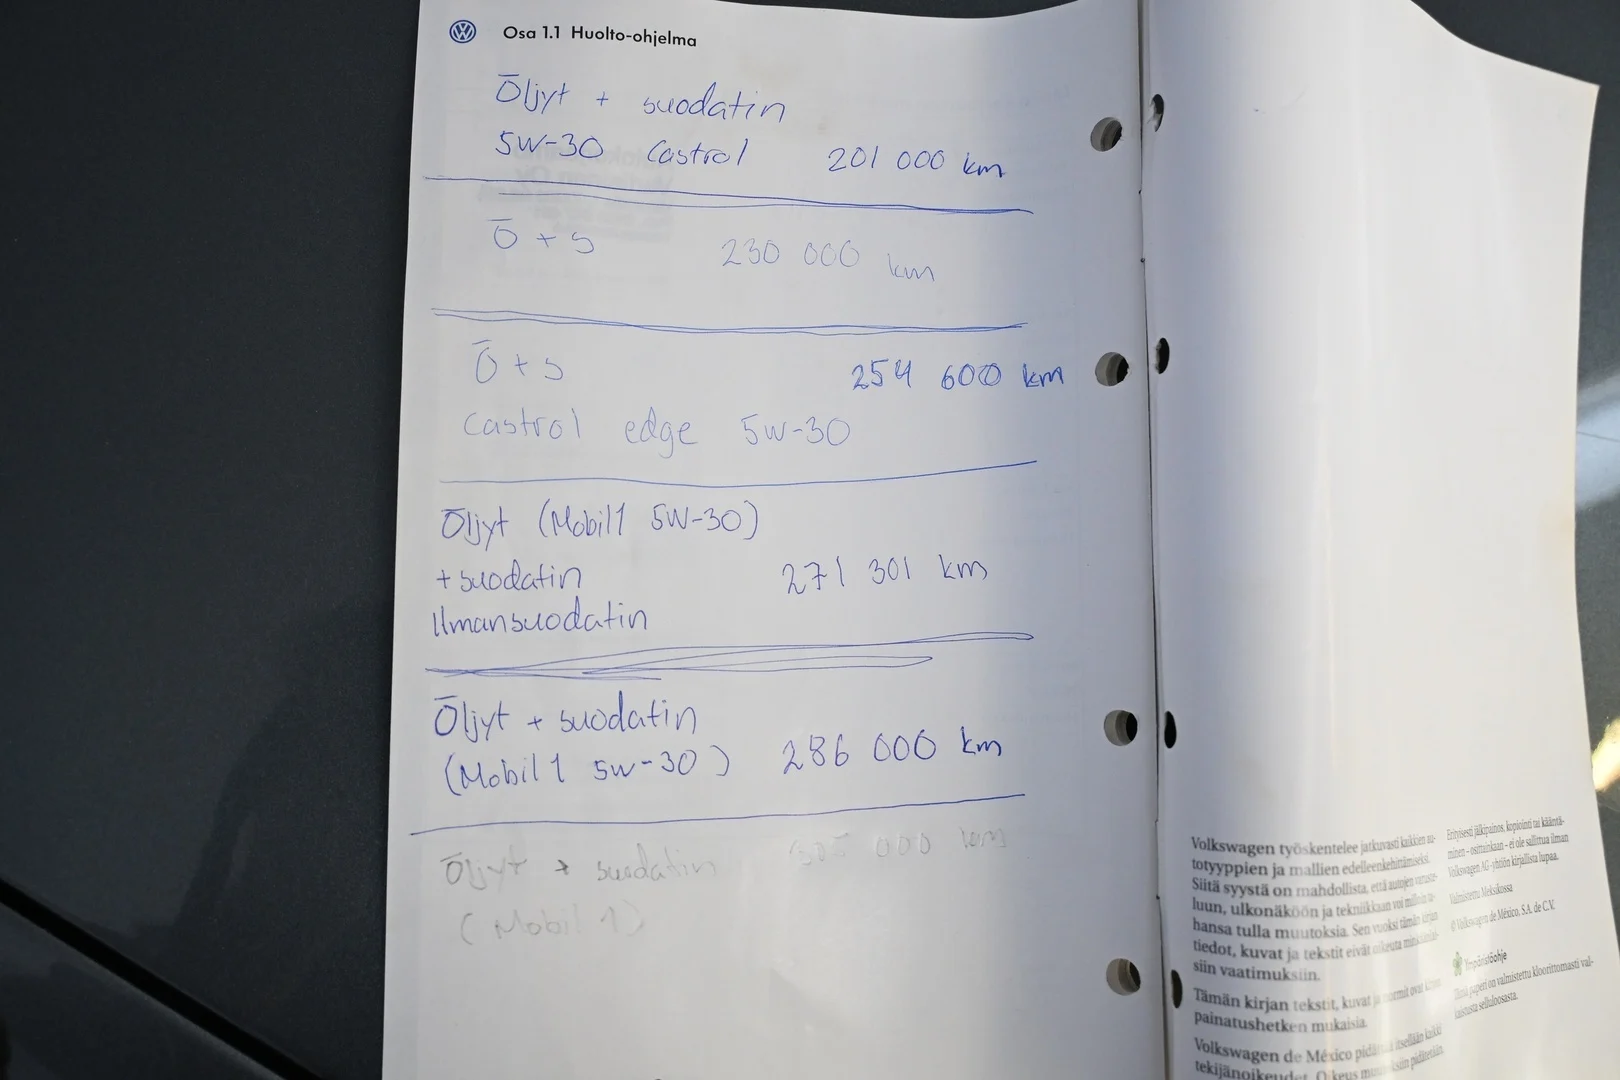 Osa 1.1 Huolto-ohjelma
Öljyt + suodatin
5W-30 Castrol 201 000 km
Ö + s 230 000 km
Ö + s 254 600 km
Castrol edge 5W-30
Öljyt (Mobil1 5W-30)
+ suodatin 271 301 km
Ilmansuodatin
Öljyt + suodatin
(Mobil 1 5W-30) 286 000 km
Öljyt + suodatin 000 km
(Mobil 1)
Volkswagen työskentelee jatkuvasti kaikkien au-
totyyppien ja mallien edelleenkehittämiseksi.
Siitä syystä on mahdollista, että autojen varuste-
luun, ulkonäköön ja tekniikkaan voi milloin ta-
hansa tulla muutoksia. Sen vuoksi tämän kirjan
tiedot, kuvat ja tekstit eivät oikeuta
siin vaatimuksiin.
Tämän kirjan tekstit, kuvat ja normit ovat
painatushetken mukaisia.
Volkswagen de México itsellään kaikki
tekijänoikeudet. Oikeus pidätetään
Erityisesti jälkipainos, kopiointi tai kääntä-
minen – osittainkaan – ei ole sallittua ilman
Volkswagen AG -yhtiön kirjallista lupaa.
Valmistettu Meksikossa
© Volkswagen de México, S.A. de C.V.
Ympäristöohje
Tämä paperi on valmistettu kloorittomasti val-
kaistusta selluloosasta.